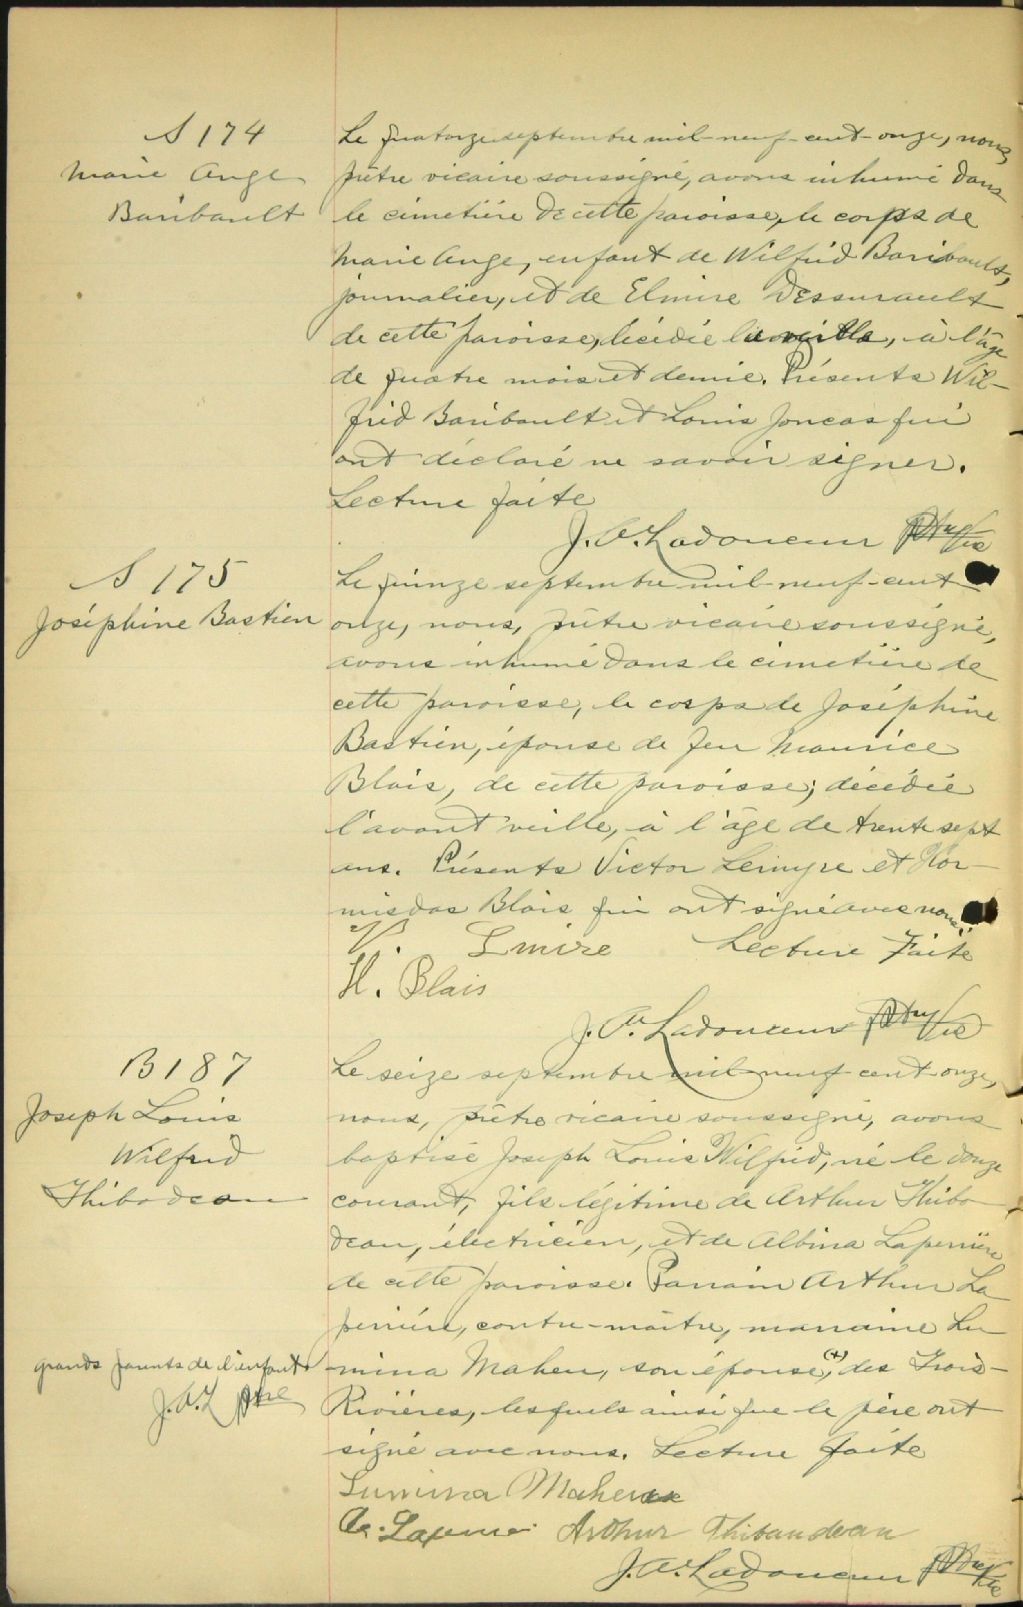 S 174
Marie Ange
Baribault
Le quatorze septembre mil-neuf-cent-onze, nous,
prêtre vicaire soussigné, avons inhumé dans
le cimetière de cette paroisse, le corps de
Marie Ange, enfant de Wilfrid Baribault,
journalier, et de Elmire Dessurault
de cette paroisse, décédée la veille, à l'âge
de quatre mois et demie. Présents Wil-
frid Baribault et Louis Joncas qui
ont déclaré ne savoir signer.
Lecture faite
J. A. Ladouceur Ptre Vic
S 175
Joséphine Bastien
Le quinze septembre mil-neuf-cent
onze, nous, prêtre vicaire soussigné,
avons inhumé dans le cimetière de
cette paroisse, le corps de Joséphine
Bastien, épouse de feu Maurice
Blais, de cette paroisse, décédée
l'avant veille, à l'âge de trente sept
ans. Présents Victor Lemyre et Hor-
misdas Blais qui ont signé avec nous.
V. Lmire Lecture Faite
H. Blais
J. A. Ladouceur Ptre Vic
B 187
Joseph Louis
Wilfrid
Thibodeau
Le seize septembre mil neuf cent onze,
nous, prêtre vicaire soussigné, avons
baptisé Joseph Louis Wilfrid, né le douze
courant, fils légitime de Arthur Thibo-
deau, électricien, et de Albina Laperrière
de cette paroisse. Parrain Arthur La
perrière, contre-maître, marraine Lu-
mina Maheu, son épouse, (+) des Trois-
Rivières, lesquels ainsi que le père ont
signé avec nous. Lecture faite
grands parents de l'enfant
J. A. L Ptre
Lumina Maheu
A. Arthur Thibaudeau
J. A. Ladouceur Ptre Vic